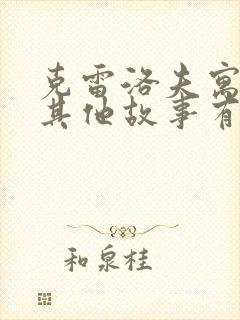 克雷洛夫寓
其他故事有
和泉桂